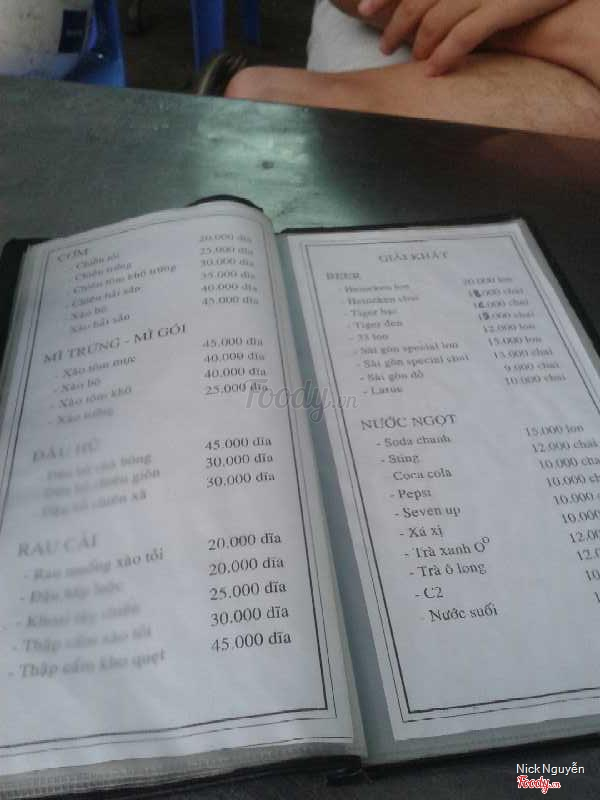 CƠM
- Chiên tỏi 20.000 dĩa
- Chiên trứng 25.000 dĩa
- Chiên tôm khô trứng 30.000 dĩa
- Chiên hải sản 35.000 dĩa
- Xào bò 40.000 dĩa
- Xào hải sản 45.000 dĩa
MÌ TRỨNG - MÌ GÓI
- Xào tôm mực 45.000 dĩa
- Xào bò 40.000 dĩa
- Xào tôm khô 40.000 dĩa
- Xào trứng 25.000 dĩa
ĐẬU HỦ
45.000 dĩa
- Đậu hủ chiên giòn 30.000 dĩa
- Đậu hủ chiên xả 30.000 dĩa
RAU CẢI
- Rau muống xào tỏi 20.000 dĩa
- Đậu bắp luộc 20.000 dĩa
- Khoai tây chiên 25.000 dĩa
- Thập cẩm xào tỏi 30.000 dĩa
- Thập cẩm kho quẹt 45.000 dĩa
GIẢI KHÁT
BEER
- Heineken lon 20.000 lon
- Heineken chai chai
- Tiger bạc chai
- Tiger đen chai
- 33 lon 12.000 lon
- Sài gòn special lon 15.000 lon
- Sài gòn special chai 13.000 chai
- Sài gòn đỏ 9.000 chai
- Larue 10.000 chai
NƯỚC NGỌT
- Soda chanh 15.000 lon
- Sting 12.000 chai
Coca cola 10.000 cha
- Pepsi 10.000 cha
- Seven up 10.000
- Xá xị 10.000
- Trà xanh O° 12.00
- Trà ô long 12.0
- C2 10
- Nước suối 1
foody.vn
Nick Nguyễn
Foody.vn